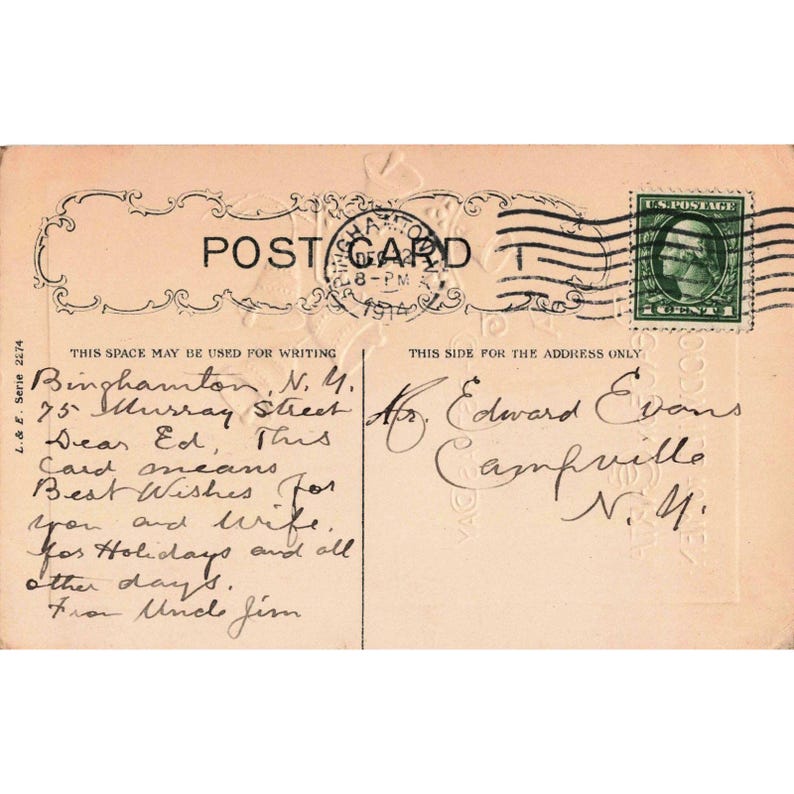 POST CARD
BINGHAMTON, N.Y.
DEC
8-PM
1914
U.S. POSTAGE
1 CENT 1
THIS SPACE MAY BE USED FOR WRITING
THIS SIDE FOR THE ADDRESS ONLY
L. & E. Serie 2274
Binghamton, N. Y.
75 Murray Street
Dear Ed, This
Card means
Best Wishes for
you and Wife.
for Holidays and all
other days.
From Uncle Jim
Mr. Edward Evans
Campville
N. Y.